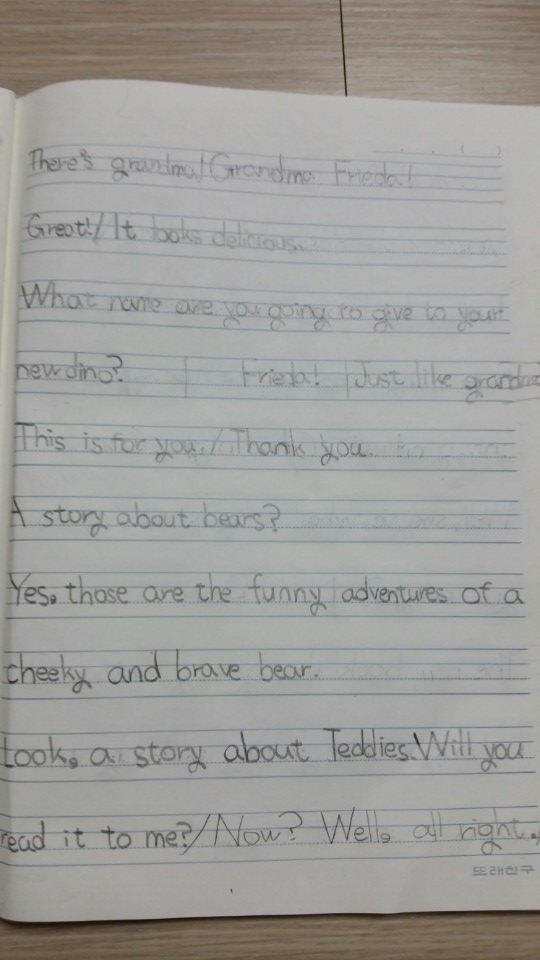 There's grandma! Grandma Frieda!
Great!/It looks delicious.
What name are you going to give to your
new dino? | Frieda! | Just like grandma
This is for you./Thank you.
A story about bears?
Yes, those are the funny adventures of a
cheeky and brave bear.
Look, a story about Teddies. Will you
read it to me?/Now? Well, all right.
또래친구